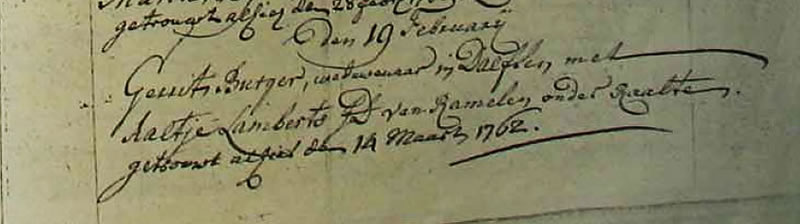 getrouwt alhier den 28
den 19 Februarij
Gerrit Burger, weduwenaar in Dalfsen met
Aaltje Lamberts JD van Ramelen onder Raalte.
getrouwt alhier den 14 Maart 1762.